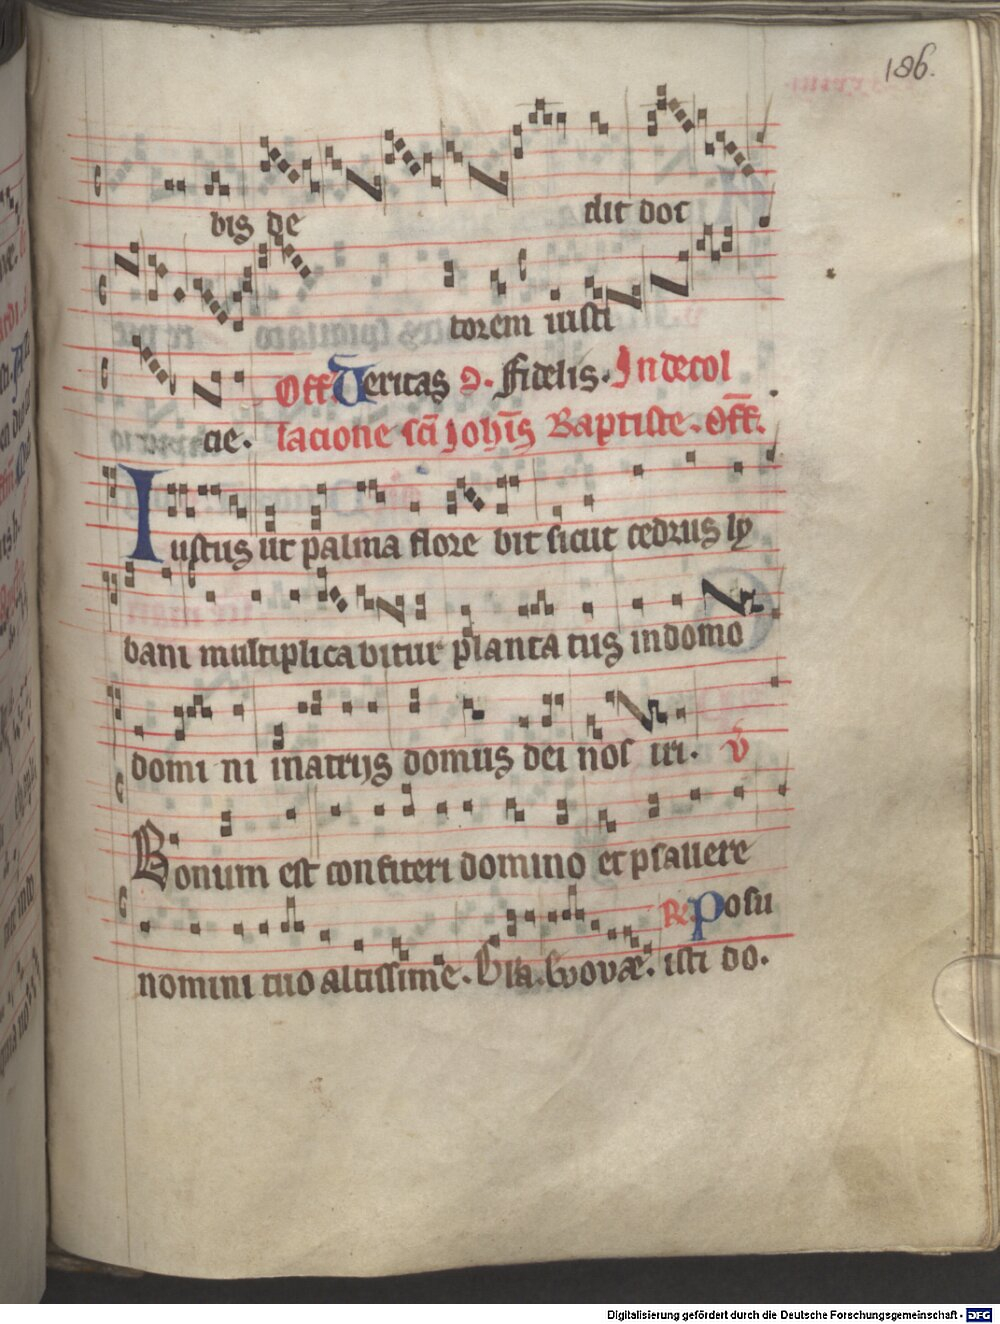 186.
bis de dit doc
torem iusti
cie. Off Veritas Co. Fidelis. In decol
lacione sci Johis Baptiste. Off.
Iustus ut palma flore bit sicut cedrus ly
bani multiplicabitur planta tus in domo
domi ni in atrijs domus dei nos tri. V
Bonum est confiteri domino et psallere
nomini tuo altissime. Gla. Euouae. Re Posu
isti do.
Digitalisierung gefördert durch die Deutsche Forschungsgemeinschaft - DFG